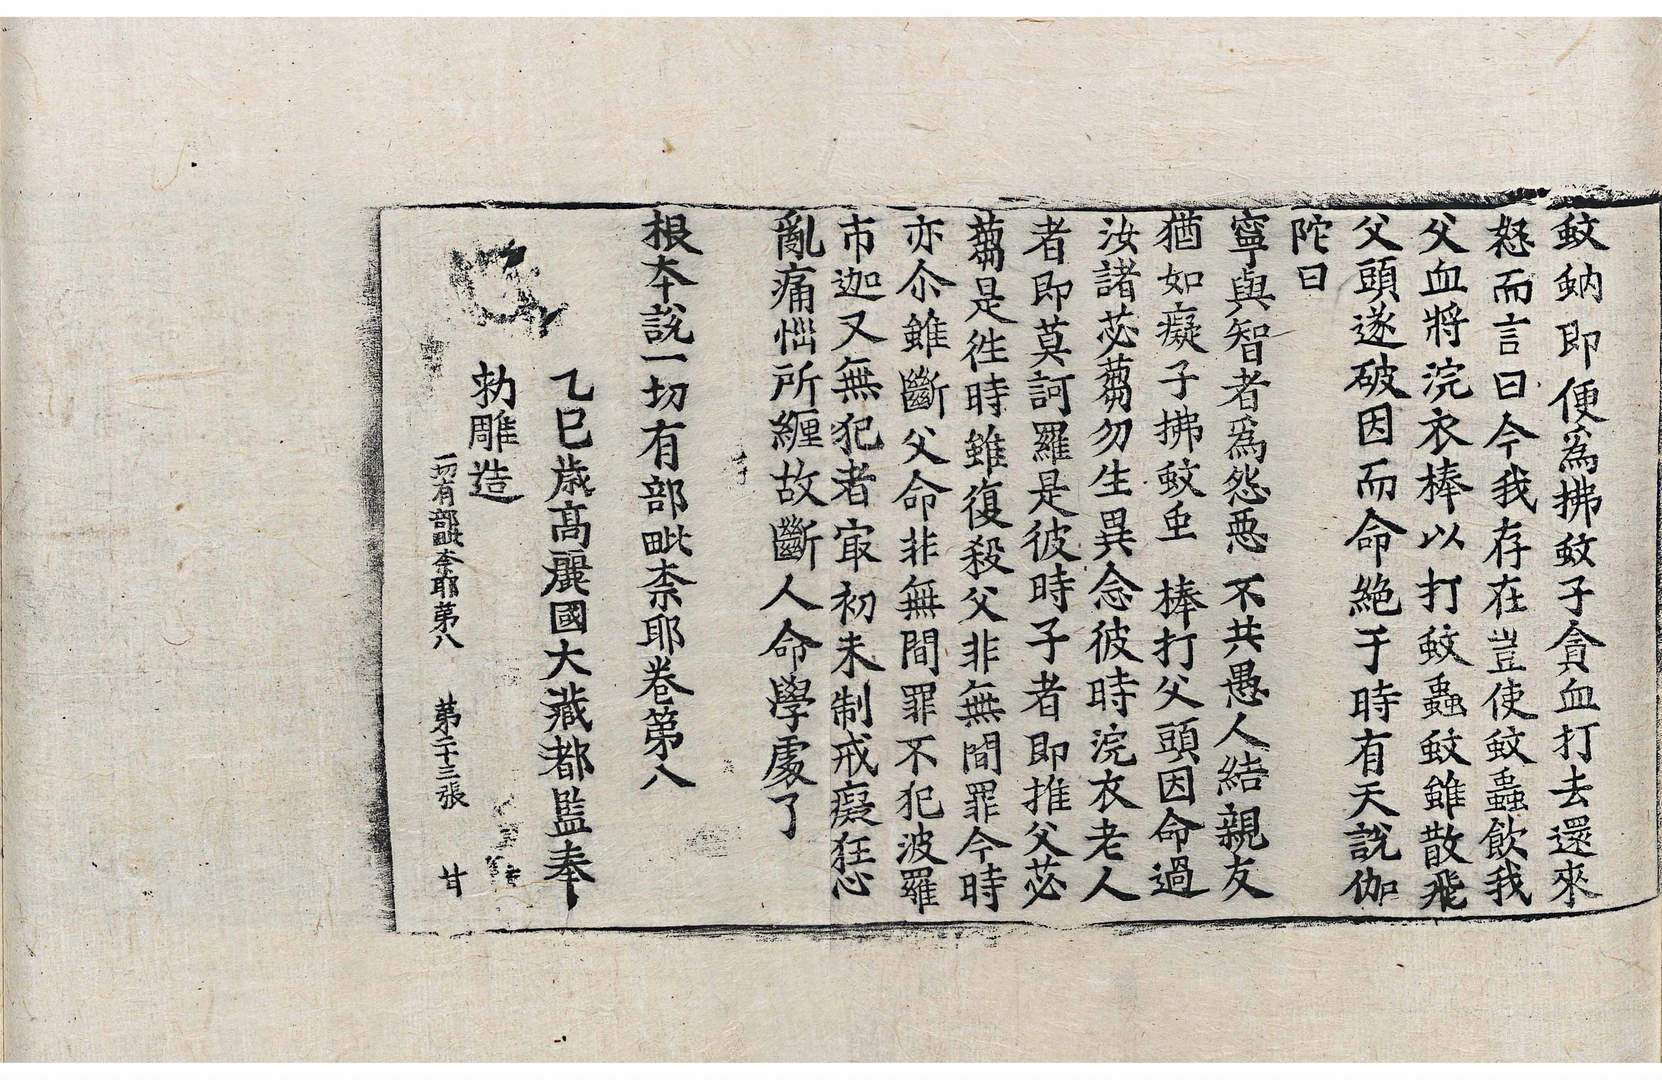 蚊蚋即便爲拂蚊子貪血打去還來
怒而言曰今我存在豈使蚊蟲飮我
父血將浣衣棒以打蚊蟲蚊雖散飛
父頭遂破因而命絶于時有天說伽
陁曰
寧與智者爲怨惡 不共愚人結親友
猶如癡子拂蚊䖝 棒打父頭因命過
汝諸苾蒭勿生異念彼時浣衣老人
者即莫訶羅是彼時子者即推父苾
蒭是徃時雖復殺父非無間罪今時
亦尒雖斷父命非無間罪不犯波羅
市迦又無犯者冣初未制戒癡狂心
亂痛惱所纏故斷人命學處了
根本說一切有部毗柰耶卷第八
乙巳歲高麗國大藏都監奉
勑雕造
一切有部毗柰耶第八 第二十三張 甘